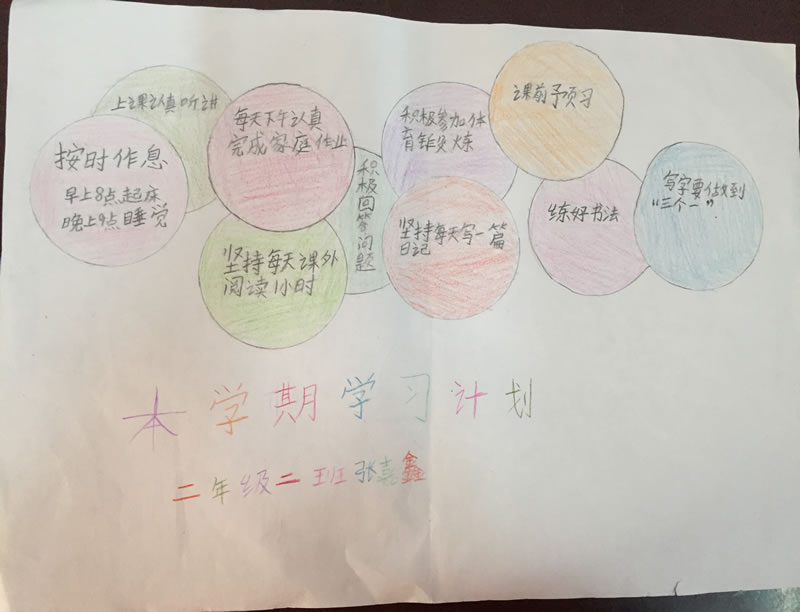 上课认真听讲
按时作息
早上8点起床
晚上9点睡觉
每天下午认真
完成家庭作业
坚持每天课外
阅读1小时
积极回答问题
积极参加体
育锻炼
坚持每天写一篇
日记
课前予项习
练好书法
写字要做到
“三个一”
本学期学习计划
二年级二班张嘉鑫